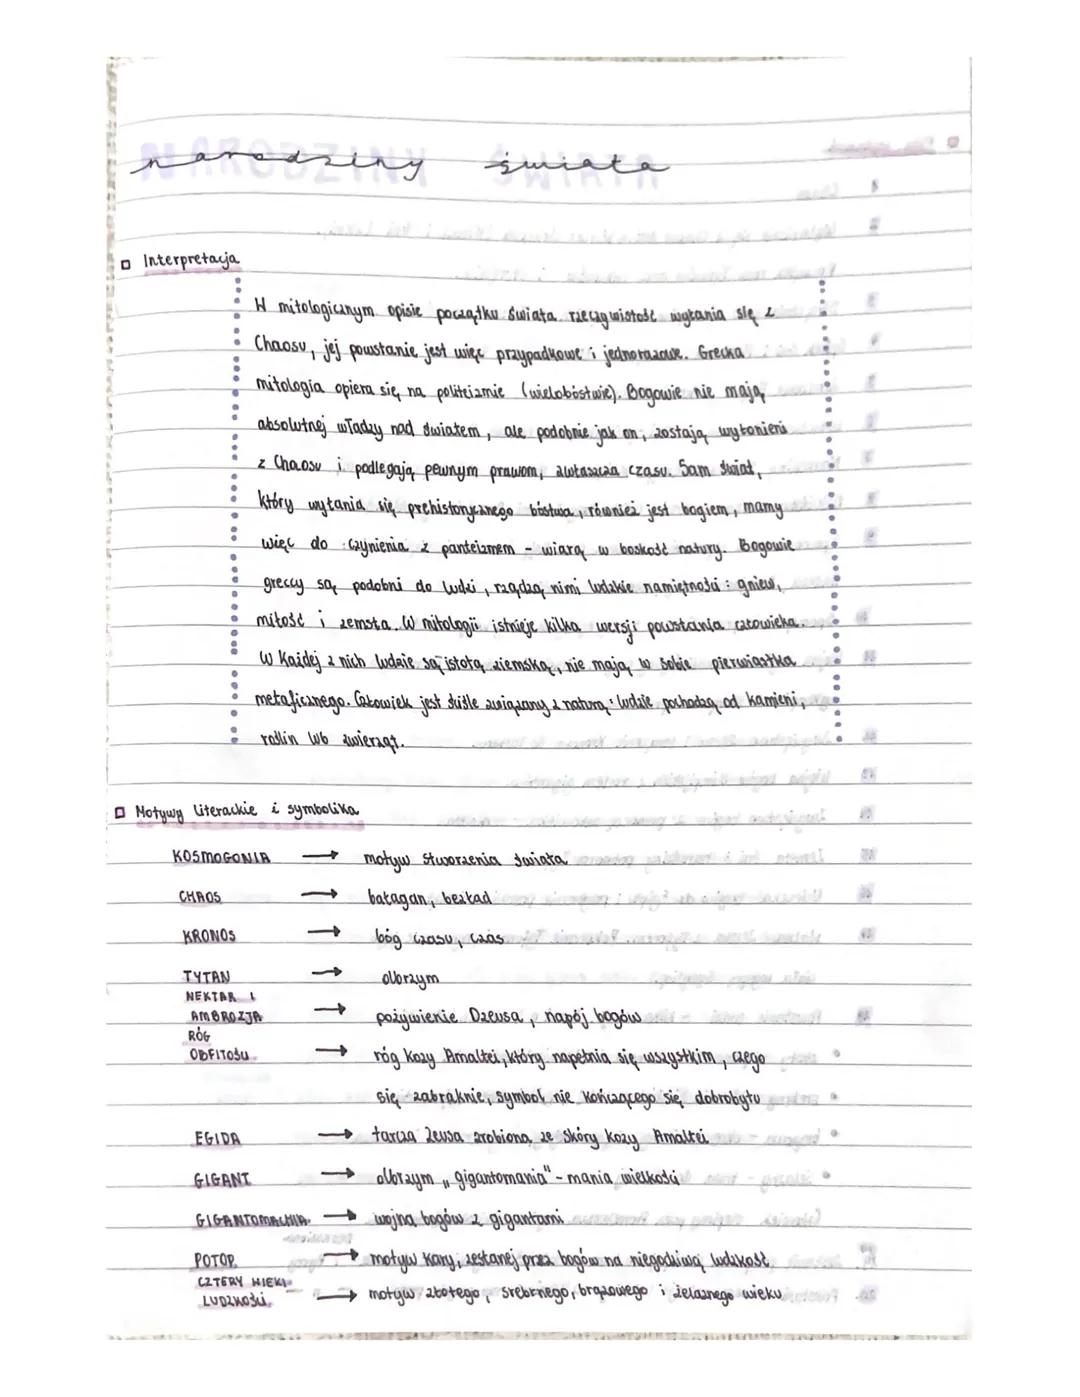 narodziny świata
Interpretacja
W mitologicznym opisie początku świata rzeczywistość wyłania się z
Chaosu, jej powstanie jest więc przypadkowe i jednorazowe. Grecka
mitologia opiera się na politeizmie (wielobóstwie). Bogowie nie mają
absolutnej władzy nad światem, ale podobnie jak on, zostają wyłonieni
z Chaosu i podlegają pewnym prawom, zwłaszcza czasu. Sam świat,
który wyłania się prehistorycznego bóstwa, również jest bogiem, mamy
więc do czynienia z panteizmem - wiarą w boskość natury. Bogowie
greccy są podobni do ludzi, rządzą nimi ludzkie namiętności: gniew,
miłość i zemsta. W mitologii istnieje kilka wersji powstania człowieka.
W Każdej z nich ludzie są istotą ziemską, nie mają w sobie pierwiastka
metaficznego. Człowiek jest ściśle związany z naturą: ludzie pochodzą od kamieni,
roślin lub zwierząt.
Motywy literackie i symbolika
KOSMOGONIA → motyw stworzenia świata
CHAOS → bałagan, bezład
KRONOS → bóg czasu, czas
TYTAN → olbrzym
NEKTAR I
AMBROZJA → pożywienie Dzeusa, napój bogów
RÓG
OBFITOŚCI → róg kozy Amaltei, który napełnia się wszystkim, czego
się zabraknie, symbol nie kończącego się dobrobytu
EGIDA → tarcza Zeusa zrobiona ze skóry kozy Amaltei
GIGANT → olbrzym „gigantomania" - mania wielkości
GIGANTOMACHIA → wojna bogów z gigantami
POTOP → motyw kary, zesłanej przez bogów na niegodziwą ludzkość
CZTERY WIEKI
LUDZKOŚCI → motyw złotego, srebrnego, brązowego i żelaznego wieku